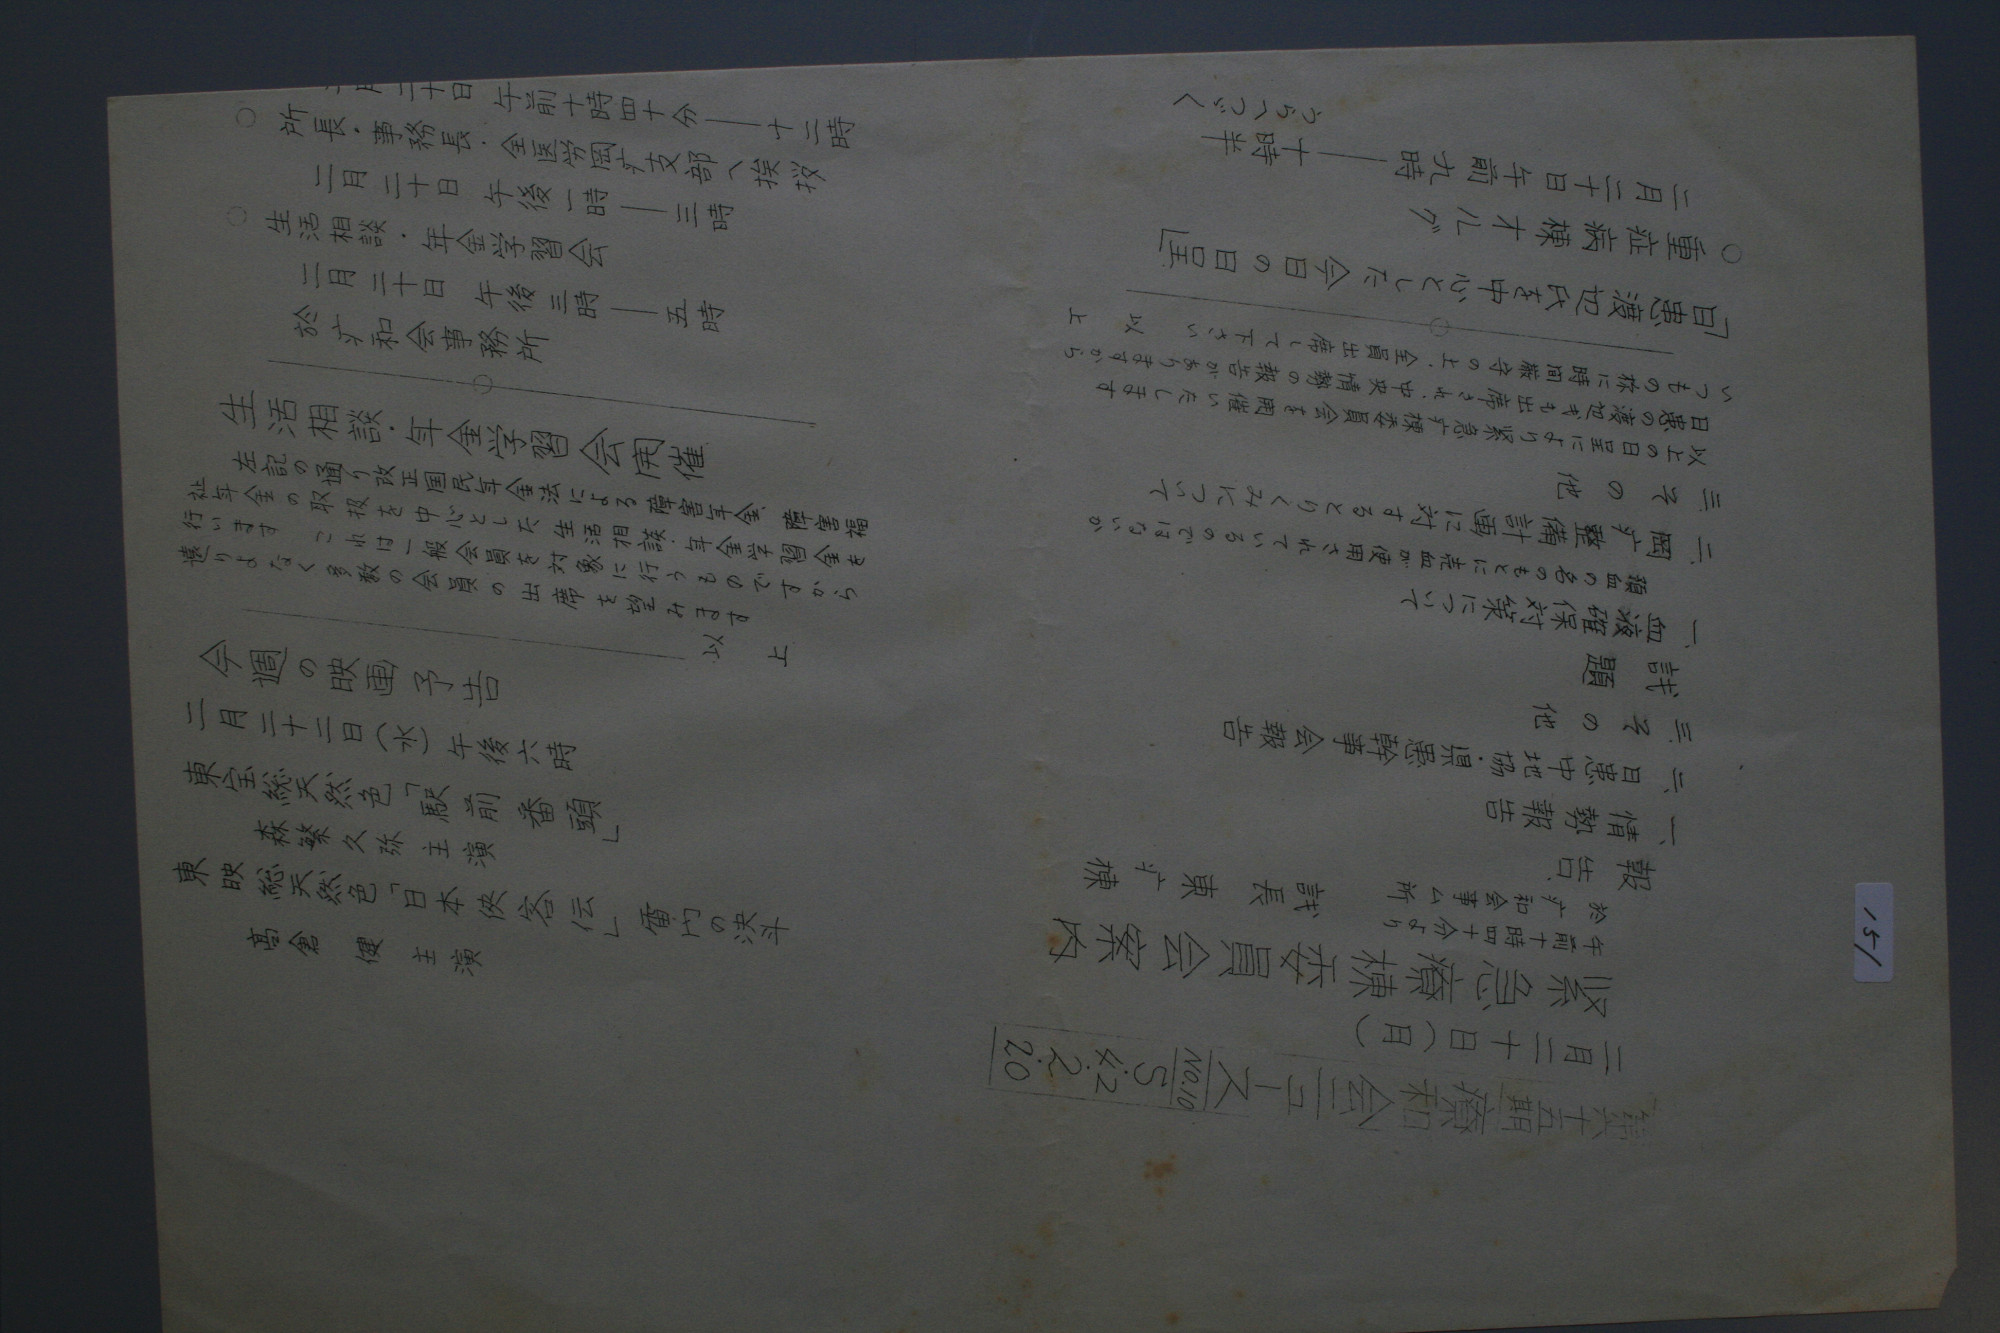 第十五期療和会ニュース
NO.10
S42.2.20
二月二十日(月)
緊急療棟委員会案内
午前十時四十分より
於 疒和会事ム所
議長 東疒棟
報告
一、情勢報告
二、日患中地協・県患幹事会報告
三、その他
議題
一、血液確保対策について
預血の名のもとに売血が使用されているのではないか
二、岡疒整備計画に対するとりくみについて
三、その他
以上の日呈により緊急疒棟委員会を開催いたします
日患の渡辺氏も出席され、中央情勢の報告がありますから
いつもの様に時間厳守の上、全員出席して下さい
以上
「日患渡辺氏を中心とした今日の日呈」
○重症病棟オルグ
二月二十日午前九時――十時半
うらへつづく
二月二十日 午前十時四十分――十二時
○所長・事務長・全医労岡疒支部へ挨拶
二月二十日 午後一時――三時
○生活相談・年金学習会
二月二十日 午後三時――五時
於 疒和会事務所
生活相談・年金学習会開催
左記の通り改正国民年金法による障害年金、障害福
祉年金の取扱を中心とした生活相談・年金学習会を
行います これは一般会員を対象に行うものですから
遠りよなく多数の会員の出席を望みます
以上
今週の映画予告
二月二十二日(水)午後六時
東宝総天然色「駅前番頭」
森繁久弥 主演
東映総天然色「日本侠客伝」雷門の決斗
高倉 健 主演
151